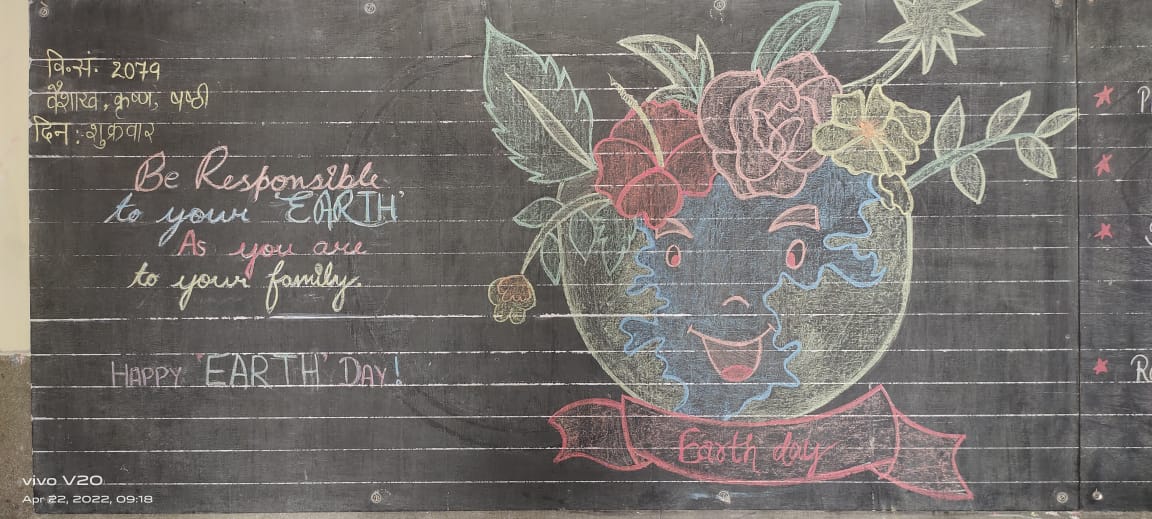 वि.सं. 2079
वैशाख, कृष्ण, षष्ठी
दिन: शुक्रवार
Be Responsible
to your 'EARTH'
As you are
to your family.
HAPPY 'EARTH' DAY!
Earth day
vivo V20
Apr 22, 2022, 09:18